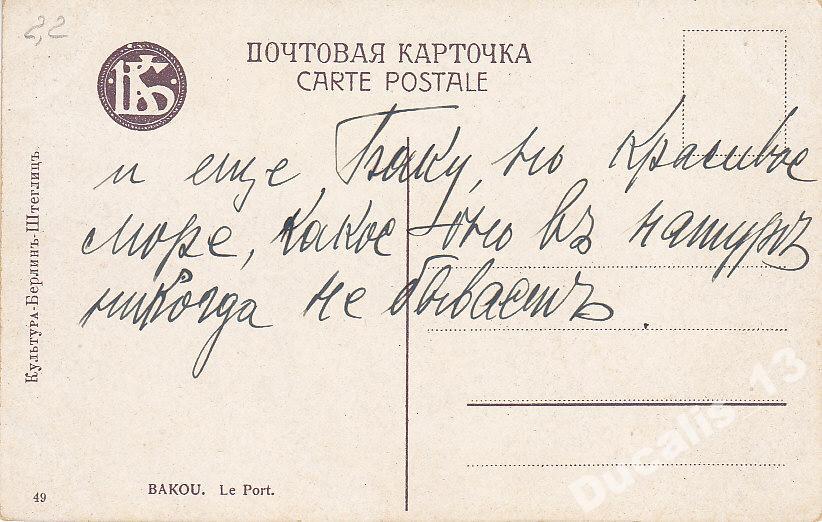 2,2
ПОЧТОВАЯ КАРТОЧКА
CARTE POSTALE
и еще Баку, но красивое
море, какое оно въ натурѣ
никогда не бываетъ.
Культура-Берлинъ-Штеглицъ
49
BAKOU. Le Port.
Ducalis_13